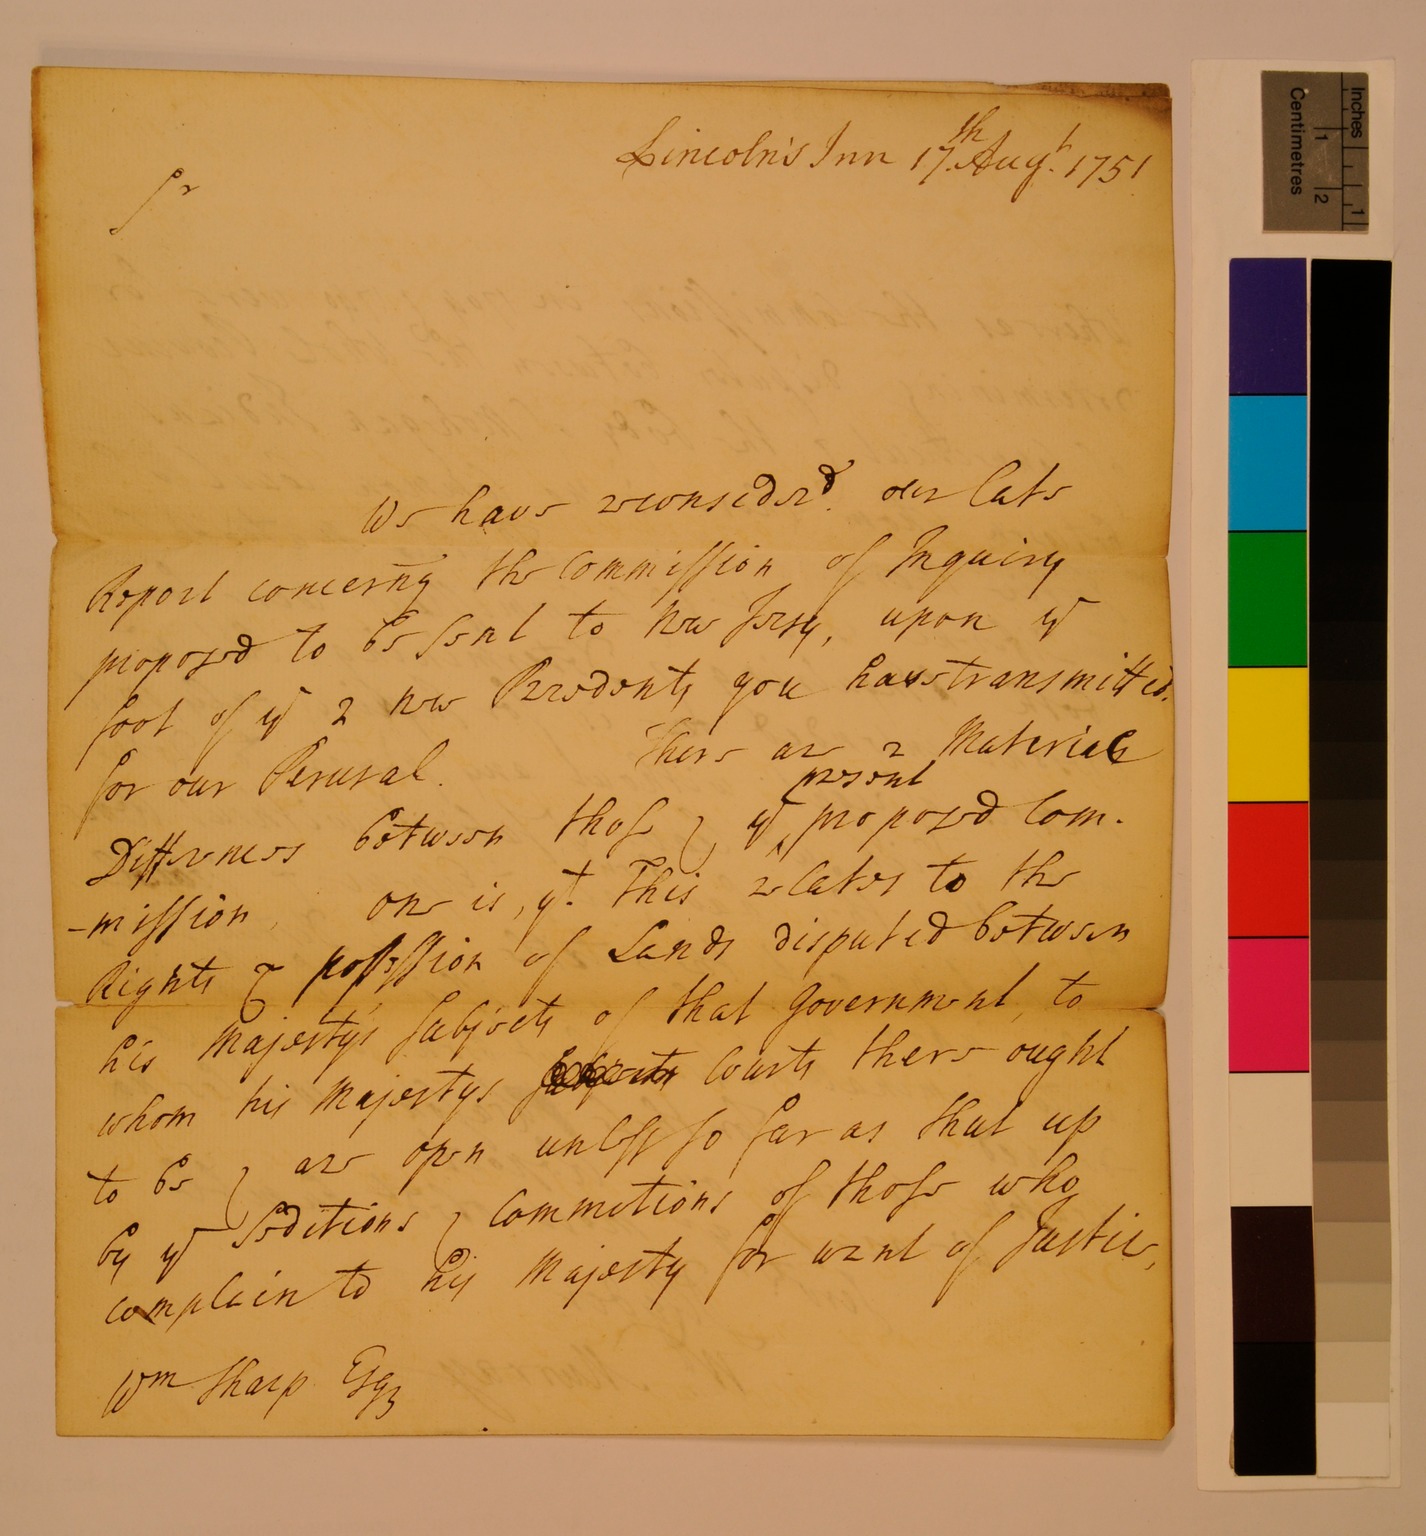 Lincoln's Inn 17th Augt. 1751
Sr
We have reconsiderd. our late
Report concerng the Commission of Inquiry
proposed to be sent to New Jersy, upon ye
foot of ye 2 new Precedents you have transmitted.
for our Perusal. There are 2 Material
present
Differences between those & ye proposed Com-
-mission, one is, yt. This relates to the
Rights & possession of Lands disputed between
his Majesty's Subjects of that Government, to
whom his Majestys Courts there ought
to be & are open unless so far as shut up
by ye Seditions & Commotions of those who
complain to his Majesty for want of Justice,
Wm Sharp Esqr
Inches
1
Centimetres
1
2